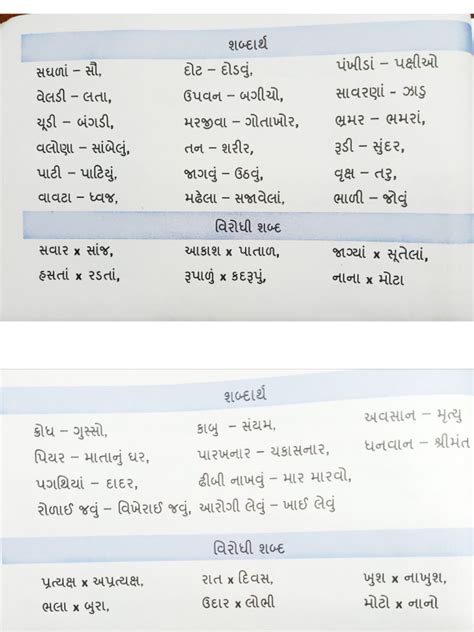 શબ્દાર્થ
સઘળાં – સૌ, દોટ – દોડવું, પંખીડાં – પક્ષીઓ
વેલડી – લતા, ઉપવન – બગીચો, સાવરણાં – ઝાડુ
ચૂડી – બંગડી, મરજીવા – ગોતાખોર, ભ્રમર – ભમરાં,
વલોણા – સાંબેલું, તન – શરીર, રૂડી – સુંદર,
પાટી – પાટિયું, જાગવું – ઉઠવું, વૃક્ષ – તરુ,
વાવટા – ધ્વજ, મઢેલા – સજાવેલાં, ભાળી – જોવું
વિરોધી શબ્દ
સવાર x સાંજ, આકાશ x પાતાળ, જાગ્યાં x સૂતેલાં,
હસતાં x રડતાં, રૂપાળું x કદરૂપું, નાના x મોટા
શબ્દાર્થ
ક્રોધ – ગુસ્સો, કાબુ – સંયમ, અવસાન – મૃત્યુ
પિયર – માતાનું ઘર, પારખનાર – ચકાસનાર, ધનવાન – શ્રીમંત
પગથિયાં – દાદર, ઢીબી નાખવું – માર મારવો,
રોળાઈ જવું – વિખેરાઈ જવું, આરોગી લેવું – ખાઈ લેવું
વિરોધી શબ્દ
પ્રત્યક્ષ x અપ્રત્યક્ષ, રાત x દિવસ, ખુશ x નાખુશ,
ભલા x બુરા, ઉદાર x લોભી મોટો x નાનો